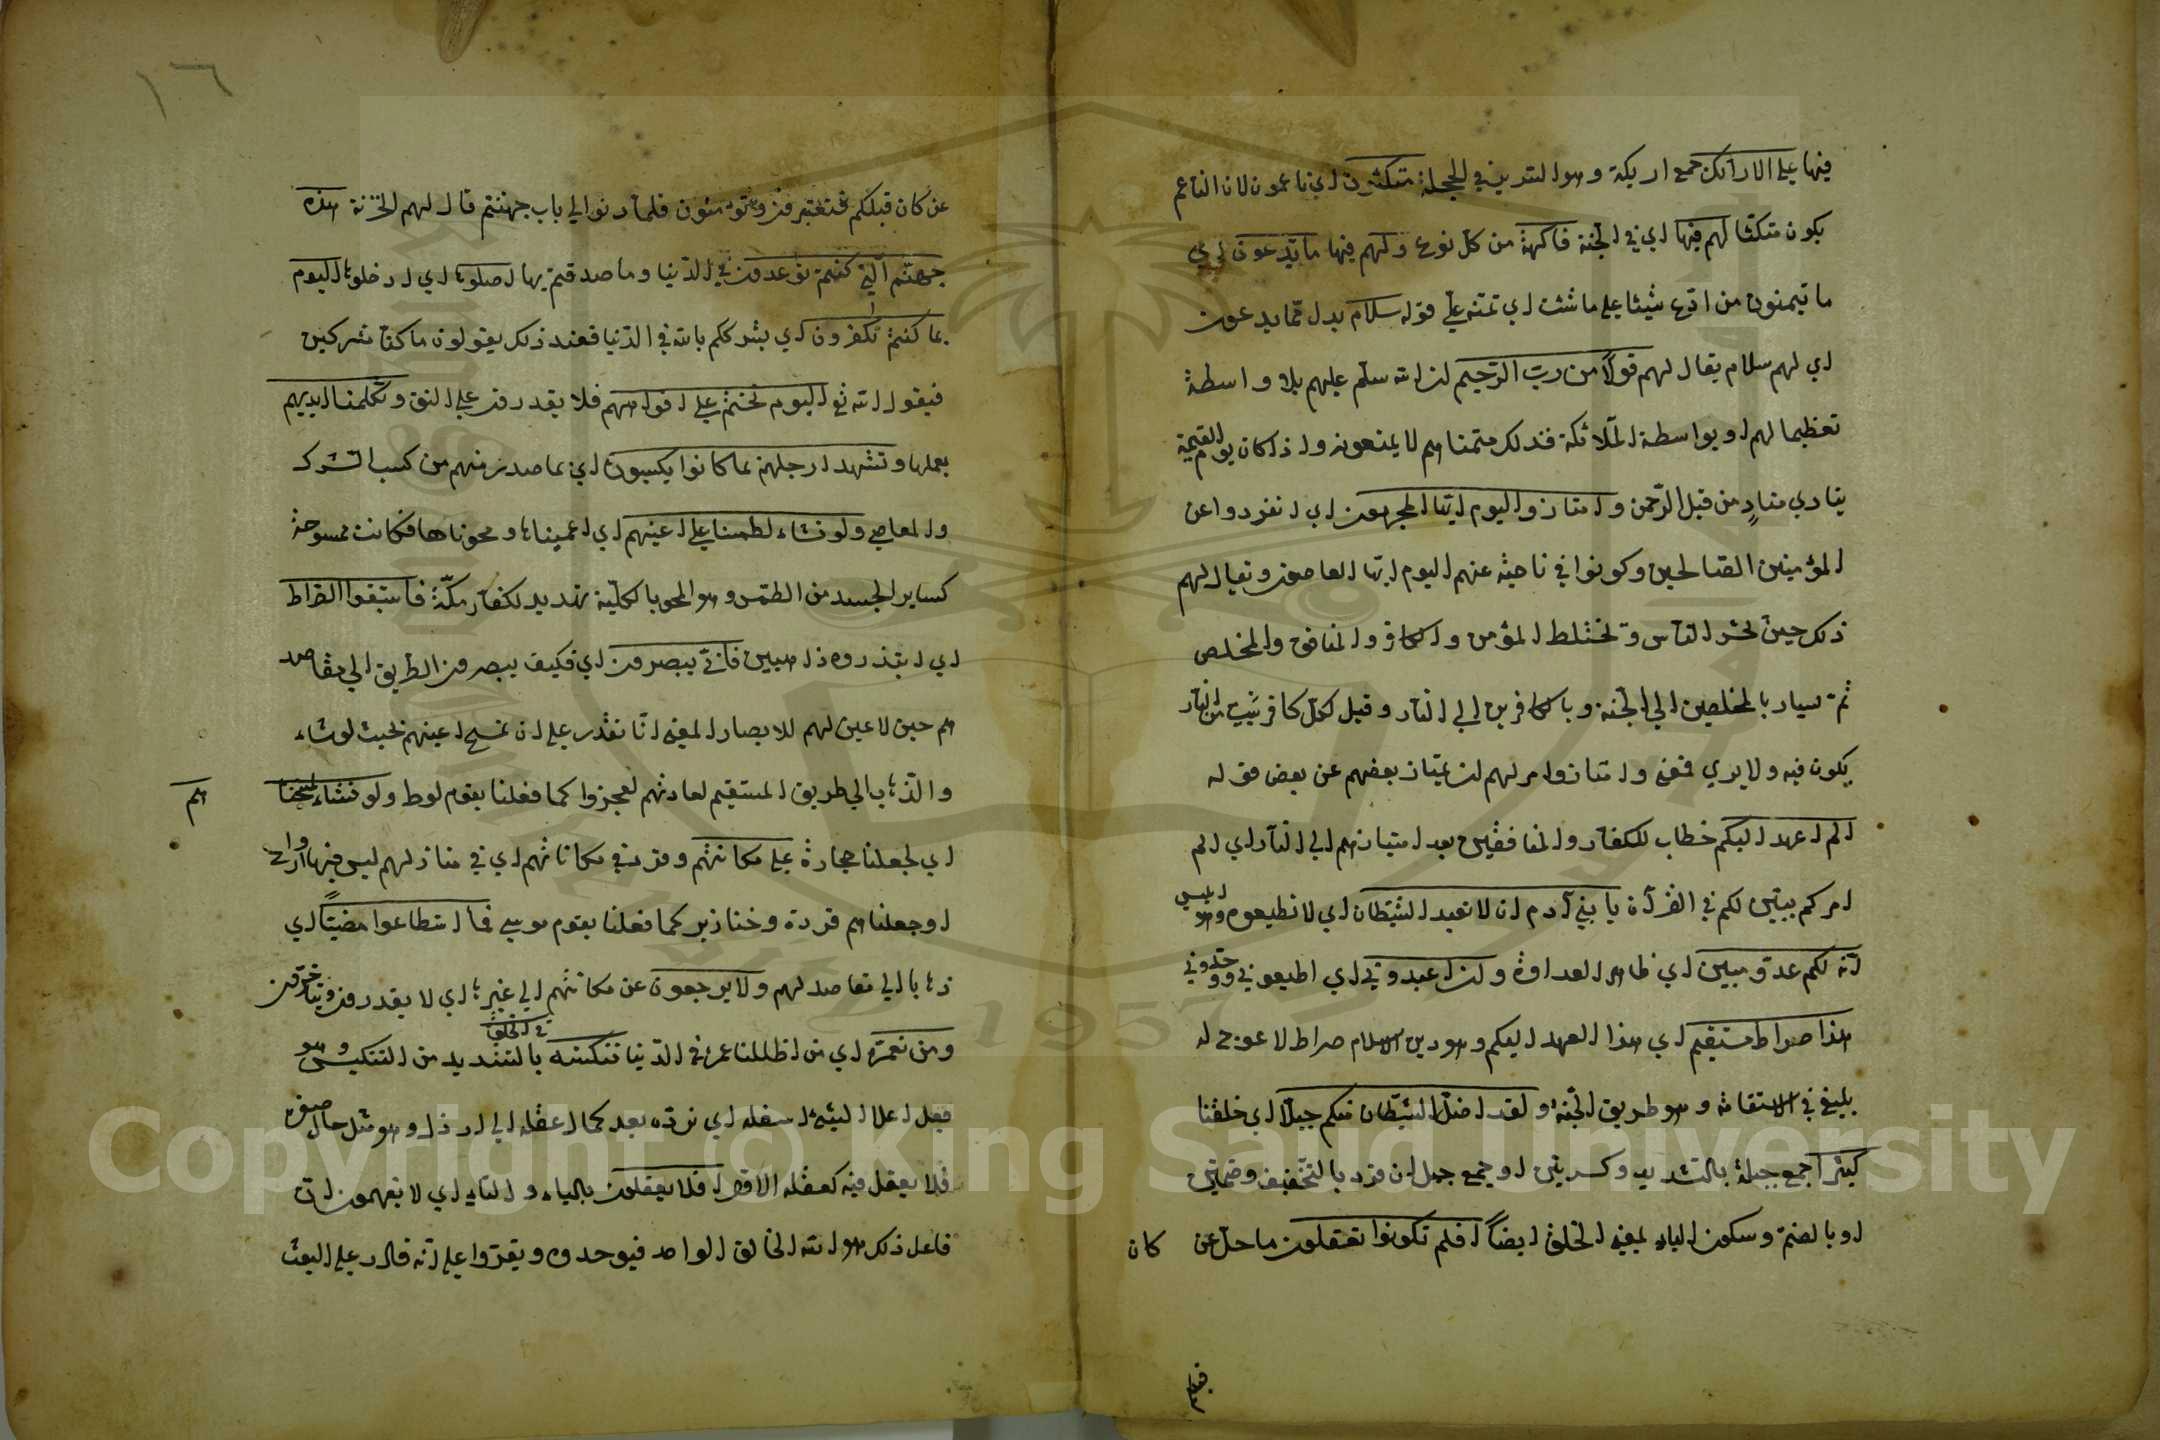 فيها على الارائك جمع اريكة وهو السرير في الحجلة متكئون اي ناعمون لان الناعم
يكون متكئا لهم فيها اي في الجنة فاكهة من كل نوع ولهم فيها ما يدعون اي
ما يتمنون من ادع شيئا على ما شئت اي تمنه علي قوله سلام بدل مما يدعون
اي لهم سلام يقال لهم قولا من رب الرحيم لان الله سلم عليهم بلا واسطة
تعظيما لهم او بواسطة الملائكة فذلك متمناهم لا يمنعونه واذا كان يوم القيمة
ينادي مناد من قبل الرحمن وامتازوا اليوم ايها المجرمون اي انفردوا عن
المؤمنين الصالحين وكونوا في ناحية عنهم اليوم ايها العاصون ويقال لهم
ذلك حين يحشر الناس ويختلط المؤمن والكافر والمنافق والمخلص
ثم يسار بالمخلصين الى الجنة وبالكافرين الى النار وقيل لكل كافر بيت من النار
يكون فيه ولا يرى فمعنى وامتازوا امر لهم لان يمتاز بعضهم عن بعض قوله
الم اعهد اليكم خطاب للكفار والمنافقين بعد امتيازهم الى النار اي الم
امركم ببين لكم في القرآن يا بني آدم ان لا تعبد الشيطان اي لا تطيعوه وهو ابليس
انه لكم عدو مبين اي ظاهر العداوة وان اعبدوني اي اطيعوني ووحدوني
هذا صراط مستقيم اي هذا العهد اليكم وهو دين الاسلام صراط لا عوج له
بليغ في الاستقامة وهو طريق الجنة ولقد اضل الشيطان منكم جبلا اي خلقنا
كثيرا جمع جبلة بالتشديد وكسرتين او جمع جبل ان قرء بالتخفيف وضمتين
او بالضم وسكون الباء بمعنى الخلق ايضاً افلم تكونوا تعقلون ما حل عن
كان
عن كان قبلكم فتعتبرون وتؤمنون فلما دنوا الى باب جهنم قال لهم الخزنة هذه
جهنم التي كنتم توعدون في الدنيا وما صدقتم بها اصلوها اي ادخلوها اليوم
بما كنتم تكفرون اي بشرككم بالله في الدنيا فعند ذلك يقولون ما كنا مشركين
فيقول الله تع اليوم نختم على افواههم فلا يقدرون على النق وتكلمنا ايديهم
بعملها وتشهد ارجلهم بما كانوا يكسبون اي بما صدر منهم من كسب الشرك
والمعاصي ولو نشاء لطمسنا على اعينهم اي اعميناها ومحوناها فكانت ممسوحة
كساير الجسد من الطمس وهو المحو بالكلية تهديد لكفار مكة فاستبقوا الصراط
اي ابتدروه ذاهبين فانى يبصرون اي فكيف يبصرون الطريق الى مقاصد
هم حين لا عين لهم للابصار المعنى انا نقدر على ان نمسح اعينهم بحيث لو شاء
هم
والذهاب الى طريق المستقيم لعادتهم لعجزوا كما فعلنا بقوم لوط ولو نشاء لمسخنا
اي لجعلنا حجارة على مكانتهم وقرئ مكاناتهم اي في منازلهم ليس فيها ارواح
او جعلناهم قردة وخنازير كما فعلنا بقوم موسى فما استطاعوا مضياً اي
ذهابا الى مقاصد لهم ولا يرجعون عن مكانتهم الى غيرها اي لا يقدرون
ومن نعمره اي من اطلنا عمره في الدنيا ننكسه في الخلق بالتشديد من التنكيس وهو
جعل اعلا الشئ اسفله اي نرده بعد كمال عقله الى ارذل وهو مثل حال صغره
فلا يعقل فيه كعقله الاول افلا يعقلون بالياء والتاء اي لا يفهمون ان
فاعل ذلك هو الله الخالق الواحد فيوحدوه ويقروا على انه قادر على البعث